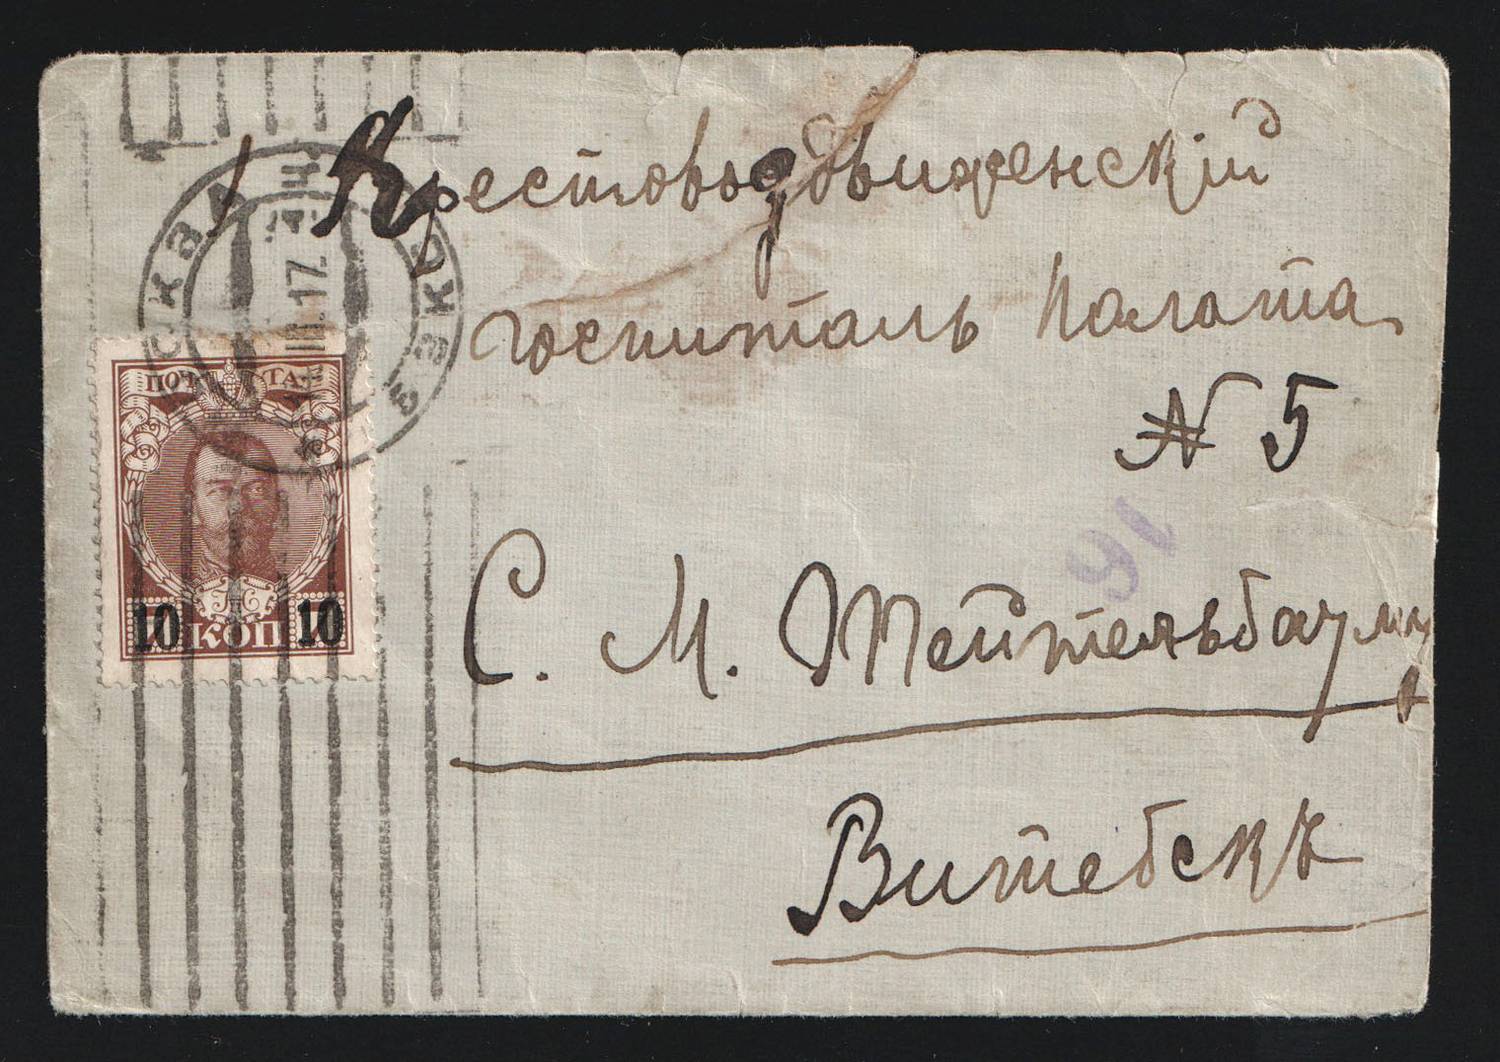 Крестовоздвиженскій
госпиталь Палата
№ 5
16
С. М. Тейтельбаум
Витебскъ
ПОЧТА
10 КОП 10
III.17.